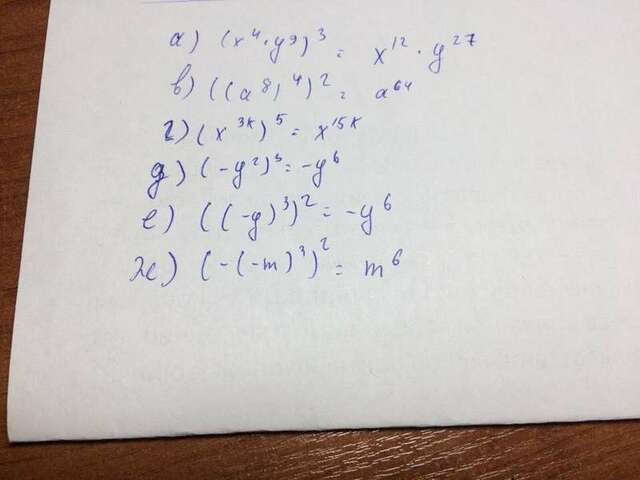 а) (x⁴·y⁹)³ = x¹²·y²⁷
в) ((a⁸)⁴)² = a⁶⁴
г) (x³ᴷ)⁵ = x¹⁵ᴷ
д) (-y²)³ = -y⁶
е) ((-y)³)² = -y⁶
ж) (-(-m)³)² = m⁶